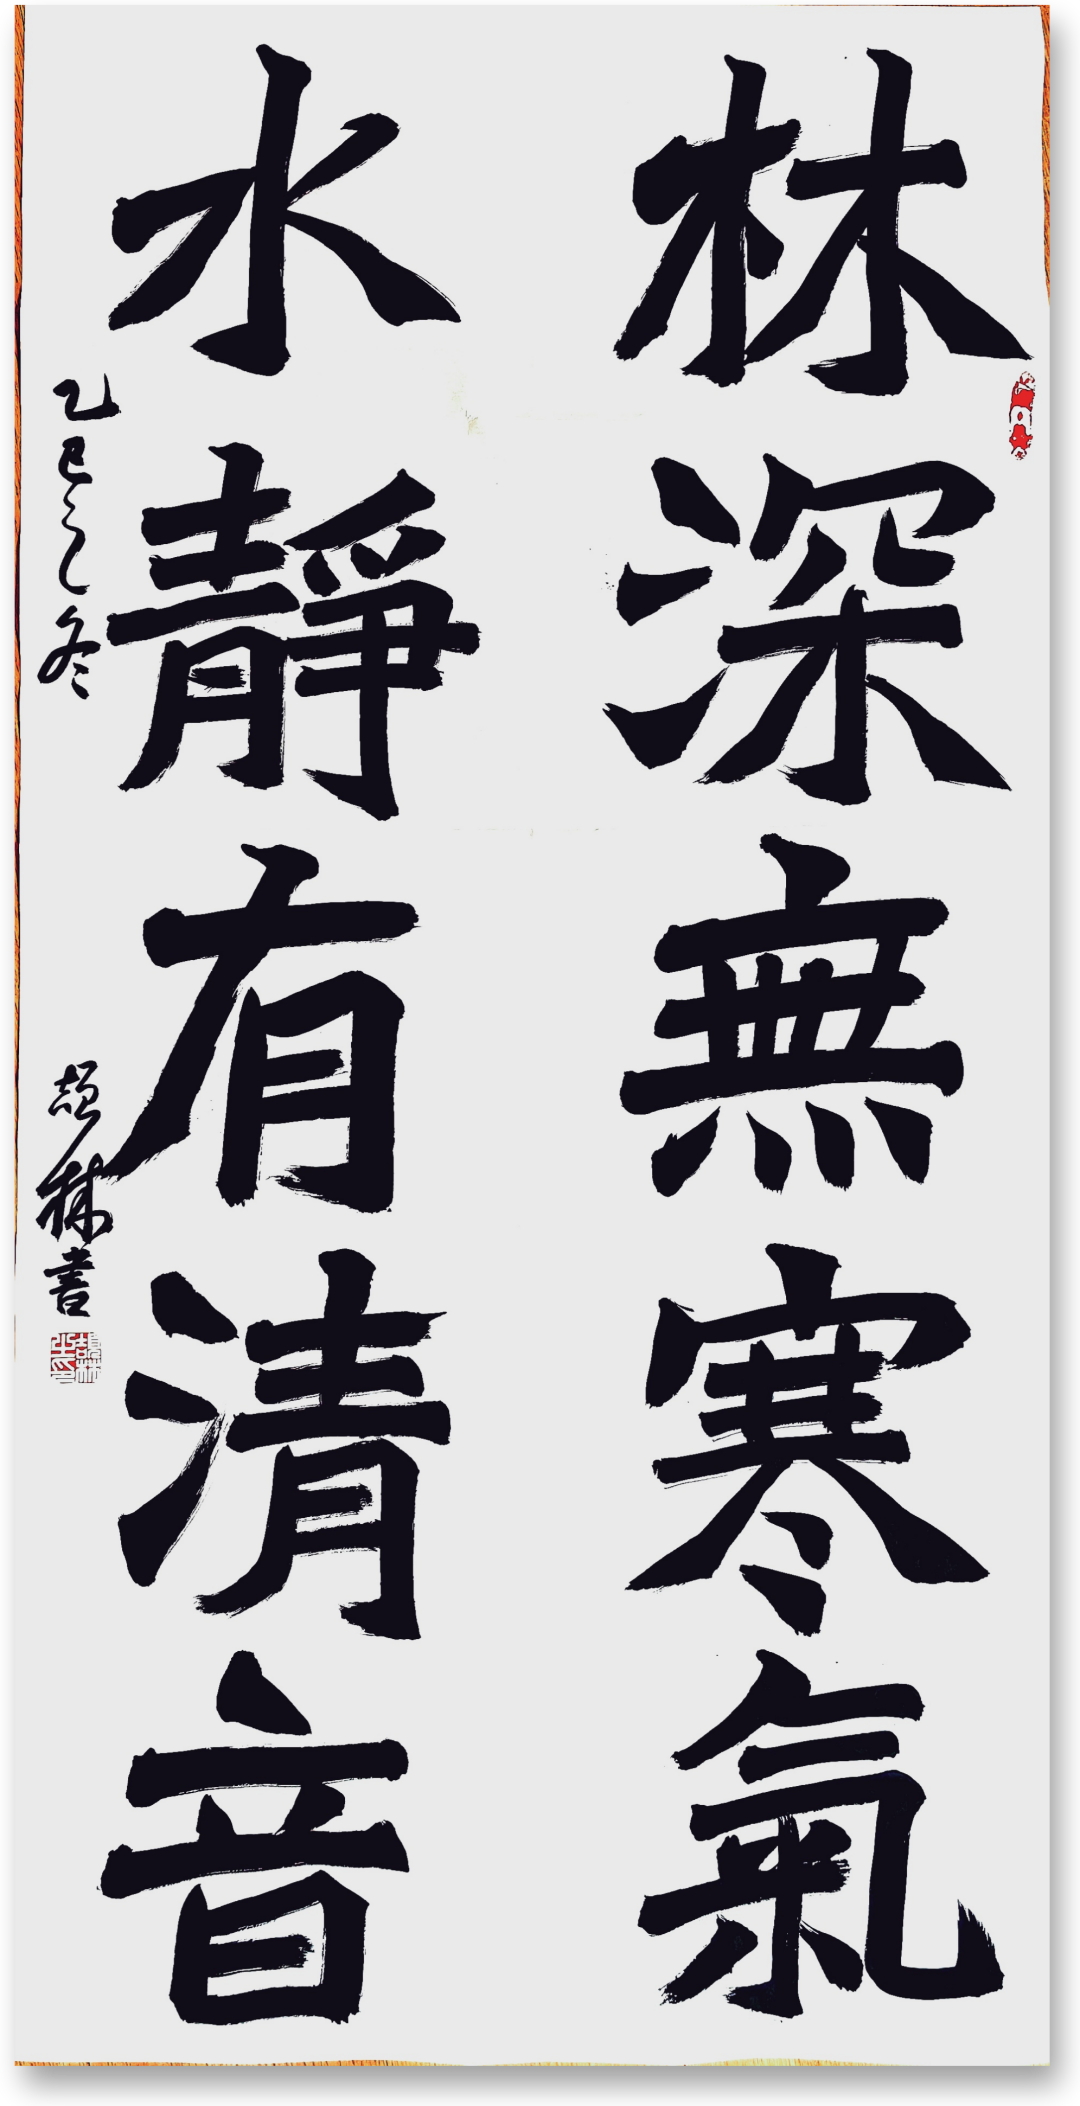 林深無寒氣
水靜有清音
乙巳之冬
林書